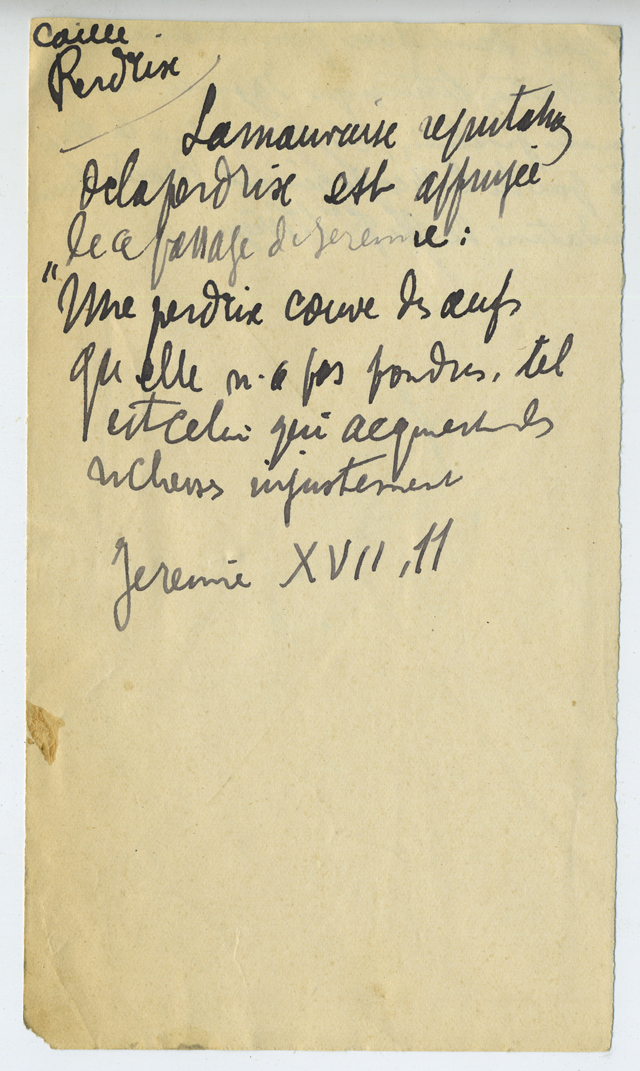 Caille
Perdrix
La mauvaise reputation
de la perdrix est appuyée
de ce passage de Jeremie :
"Une perdrix couve des œufs
qu'elle n'a pas pondus, tel
est celui qui acquiert des
richesses injustement
Jeremie XVII, 11